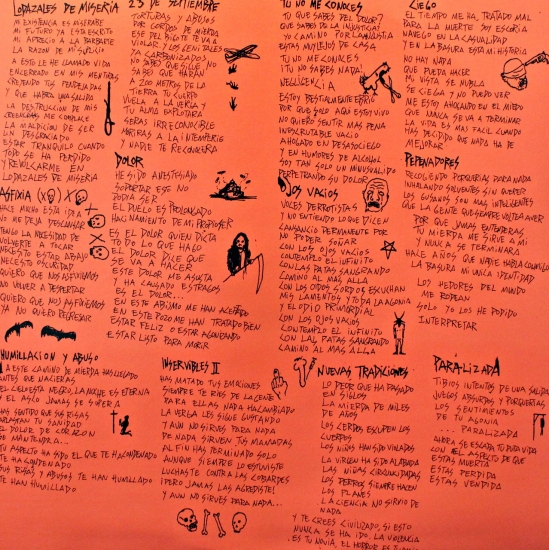 LODAZALES DE MISERIA
MI EXISTENCIA ES MISERABLE
MI FUTURO YA ESTA ESCRITO
MI APRECIO A LA BARBARIE
LA RAZON DE MI SUPLICIO
A ESTO LE HE LLAMADO VIDA
ENCERRADO EN MIS MENTIRAS
CREYENDO TUS
Y QUE HABIA UNA SALIDA
LA DESTRUCCION DE MIS
CREENCIAS ME COMPLACE
LA MALDICION DE SER
UN DESGRACIADO
ESTAR TRANQUILO CUANDO
TODO SE HA PERDIDO
Y REVOLCARME EN
LODAZALES DE MISERIA
ASFIXIA
HACE MUCHO ESTA IDEA
NO ME DEJA DESCANSAR
TENGO LA NECESIDAD DE
VOLVERTE A TOCAR
NECESITO ESTAR ABAJO
NECESITO OSCURIDAD
QUIERO QUE NOS ASFIXIEMOS
NO VOLVER A DESPERTAR
QUIERO QUE NOS ASFIXIEMOS
YA NO QUIERO REGRESAR
HUMILLACION Y ABUSO
A ESTE CAMINO DE MIERDA HAS LLEGADO
ANTES QUE NACIERAS
EL CIELO ESTA NEGRO, LA NOCHE ES ETERNA
Y EL ASCO JAMAS SE SUPERA
HAS SENTIDO QUE SUS RISAS
APLASTAN TU SANIDAD
EL DOLOR DE CORAZON
SE MANTENDRA...
TU ASPECTO HA SIDO EL QUE TE HA CONDENADO
TE HA CONDENADO
SUS RISAS Y ABUSOS TE HAN HUMILLADO
TE HAN HUMILLADO
23 DE SEPTIEMBRE
TORTURAS Y ABUSOS
POR CERDOS DE MIERDA
ESE DEL BISTURI TE VA A
VIOLAR, Y LOS GENITALES
VA CARBONIZADOS
NO SABES QUE SIGUE NO
SABES QUE HARAN
DOS METROS DE LA
TIERRA TU CUERPO
VUELA A LA VERGA Y
TU ALMA EXPLOTARA
SERAS IRRECONOCIBLE
MORIRAS A LA INTEMPERIE
Y NADIE TE RECONOCERA
DOLOR
HE SIDO ANESTESIADO
SOPORTAR ESE NO
PODIA SER
EL DUELO ES PROLONGADO
NACIMIENTO DE MI PROPIO SER
ES EL DOLOR QUIEN DICTA
TODO LO QUE HAGO
EL DOLOR DICE QUE
SE VA A HACER
ESTE DOLOR ME ASUSTA
Y HA CAUSADO ESTRAGOS
ES EL DOLOR...
EN ESTE ABISMO ME HAN ACEPTADO
EN ESTE POZO ME HAN TRATADO BIEN
ESTAR FELIZ O ESTAR AGONIZANDO
ESTAR LISTO PARA MORIR
INSERVIBLES II
HAS MATADO TUS EMOCIONES
SIEMPRE TE RIES DE LA GENTE
PARA ELLAS NADA HA CAMBIADO
LA VERGA LES SIGUE GUSTANDO
Y AUN NO SIRVES PARA NADA
DE NADA SIRVEN TUS MAMADAS
AL FIN HAS TERMINADO SOLO
AUNQUE SIEMPRE LO ESTUVISTE
LUCHASTE CONTRA LAS COBARDES
¡PERO JAMAS LAS AGREDISTE!
Y AUN NO SIRVES PARA NADA...
TU NO ME CONOCES
TU QUE SABES DEL DOLOR?
QUE SABES DE LA INJUSTICIA?
YO CAMINO POR LA INJUSTICIA
ESTAS MULETAS DE CASA
TU NO ME CONOCES
¡TU NO SABES NADA!
NEGLIGENCIA
ESTOY BESTIALMENTE EBRIO
POR QUE SOLO AQUI ESTOY VIVO
NO QUIERO SENTIR MAS PENA
INESCRUTABLE VACIO
AHOGADO EN DESASOCIEGO
Y EN HUMORES DE ALCOHOL
SOY TAN SOLO UN MINUSVALIDO
PERPETRANDO SU DOLOR
OJOS VACIOS
VOCES DERROTISTAS
Y NO ENTIENDO LO QUE DICEN
CANSANCIO PERMANENTE POR
NO PODER SOÑAR
CON LOS OJOS VACIOS
CONTEMPLO EL INFINITO
CON LAS PATAS SANGRANDO
CAMINO AL MAS ALLA
CON LOS OIDOS SORDOS ESCUCHAN
MIS LAMENTOS Y TODA LA AGONIA
Y EL ODIO PRIMORDIAL
CON LOS OJOS VACIOS
CONTEMPLO EL INFINITO
CON LAS PATAS SANGRANDO
CAMINO AL MAS ALLA
NUEVAS TRADICIONES
LO DE QUE HA PASADO
EN SIGLOS
LA MIERDA DE MILES
DE AÑOS
LOS CERDOS ESCUPEN LOS
CUERPOS
LOS NIÑOS HAN SIDO VIOLADOS
LA VIRGEN HA SIDO ALABADA
LAS NIÑAS CIRCUNCIDADAS
LOS PERROS SIEMPRE HACEN
LOS PLANES
LA CIENCIA NO SIRVIO DE
NADA
Y TE CREES CIVILIZADO, SI ESTO
NUNCA SE HA IDO. LA VIOLENCIA
ES TU NOVIA, EL HORROR ES TU
CIEGO
EL TIEMPO ME HA, TRATADO MAL
PARA LA MUERTE SOY ESCORIA
NAVEGO EN LA CASUALIDAD
Y EN LA BASURA ESTA MI HISTORIA
NO HAY NADA
QUE PUEDA HACER
MI VISTA SE NUBLA
SE CIEGA Y NO PUEDO VER
ME ESTOY AHOCANDO EN EL MIEDO
QUE NUNCA SE VA A TERMINAR
LA VIDA ES MAS FACIL CUANDO
HAS DECIDIDO QUE NADA HA DE
MEJORAR
PEPENADORES
RECOGIENDO PORQUERIAS PARA NADA
INHALANDO SOLVENTES SIN QUERER
LOS GUSANOS SON MAS INTELIGENTES
QUE LA GENTE QUE SIEMPRE VOLTEA A VER
POR QUE JAMAS ENTENDERAS
TU MIERDA ME SIRVE A MI
Y NUNCA SE TERMINARA
HACE AÑOS QUE NADIE HABLA CONMIGO
LA BASURA MI UNICA IDENTIDAD
LOS HEDORES DEL MUNDO
ME RODEAN
SOLO YO LOS HE PODIDO
INTERPRETAR
PARALIZADA
TIBIOS INTENTOS DE UNA SALIDA
JUEGOS ABSURDOS Y PORQUERIAS
LOS SENTIMIENTOS
DE TU AGONIA
....PARALIZADA
AHORA SE ESCAPA TU PUTA VIDA
CON EL ASPECTO DE QUE
ESTAS MUERTA
ESTAS PERDIDA
ESTAS VENDIDA